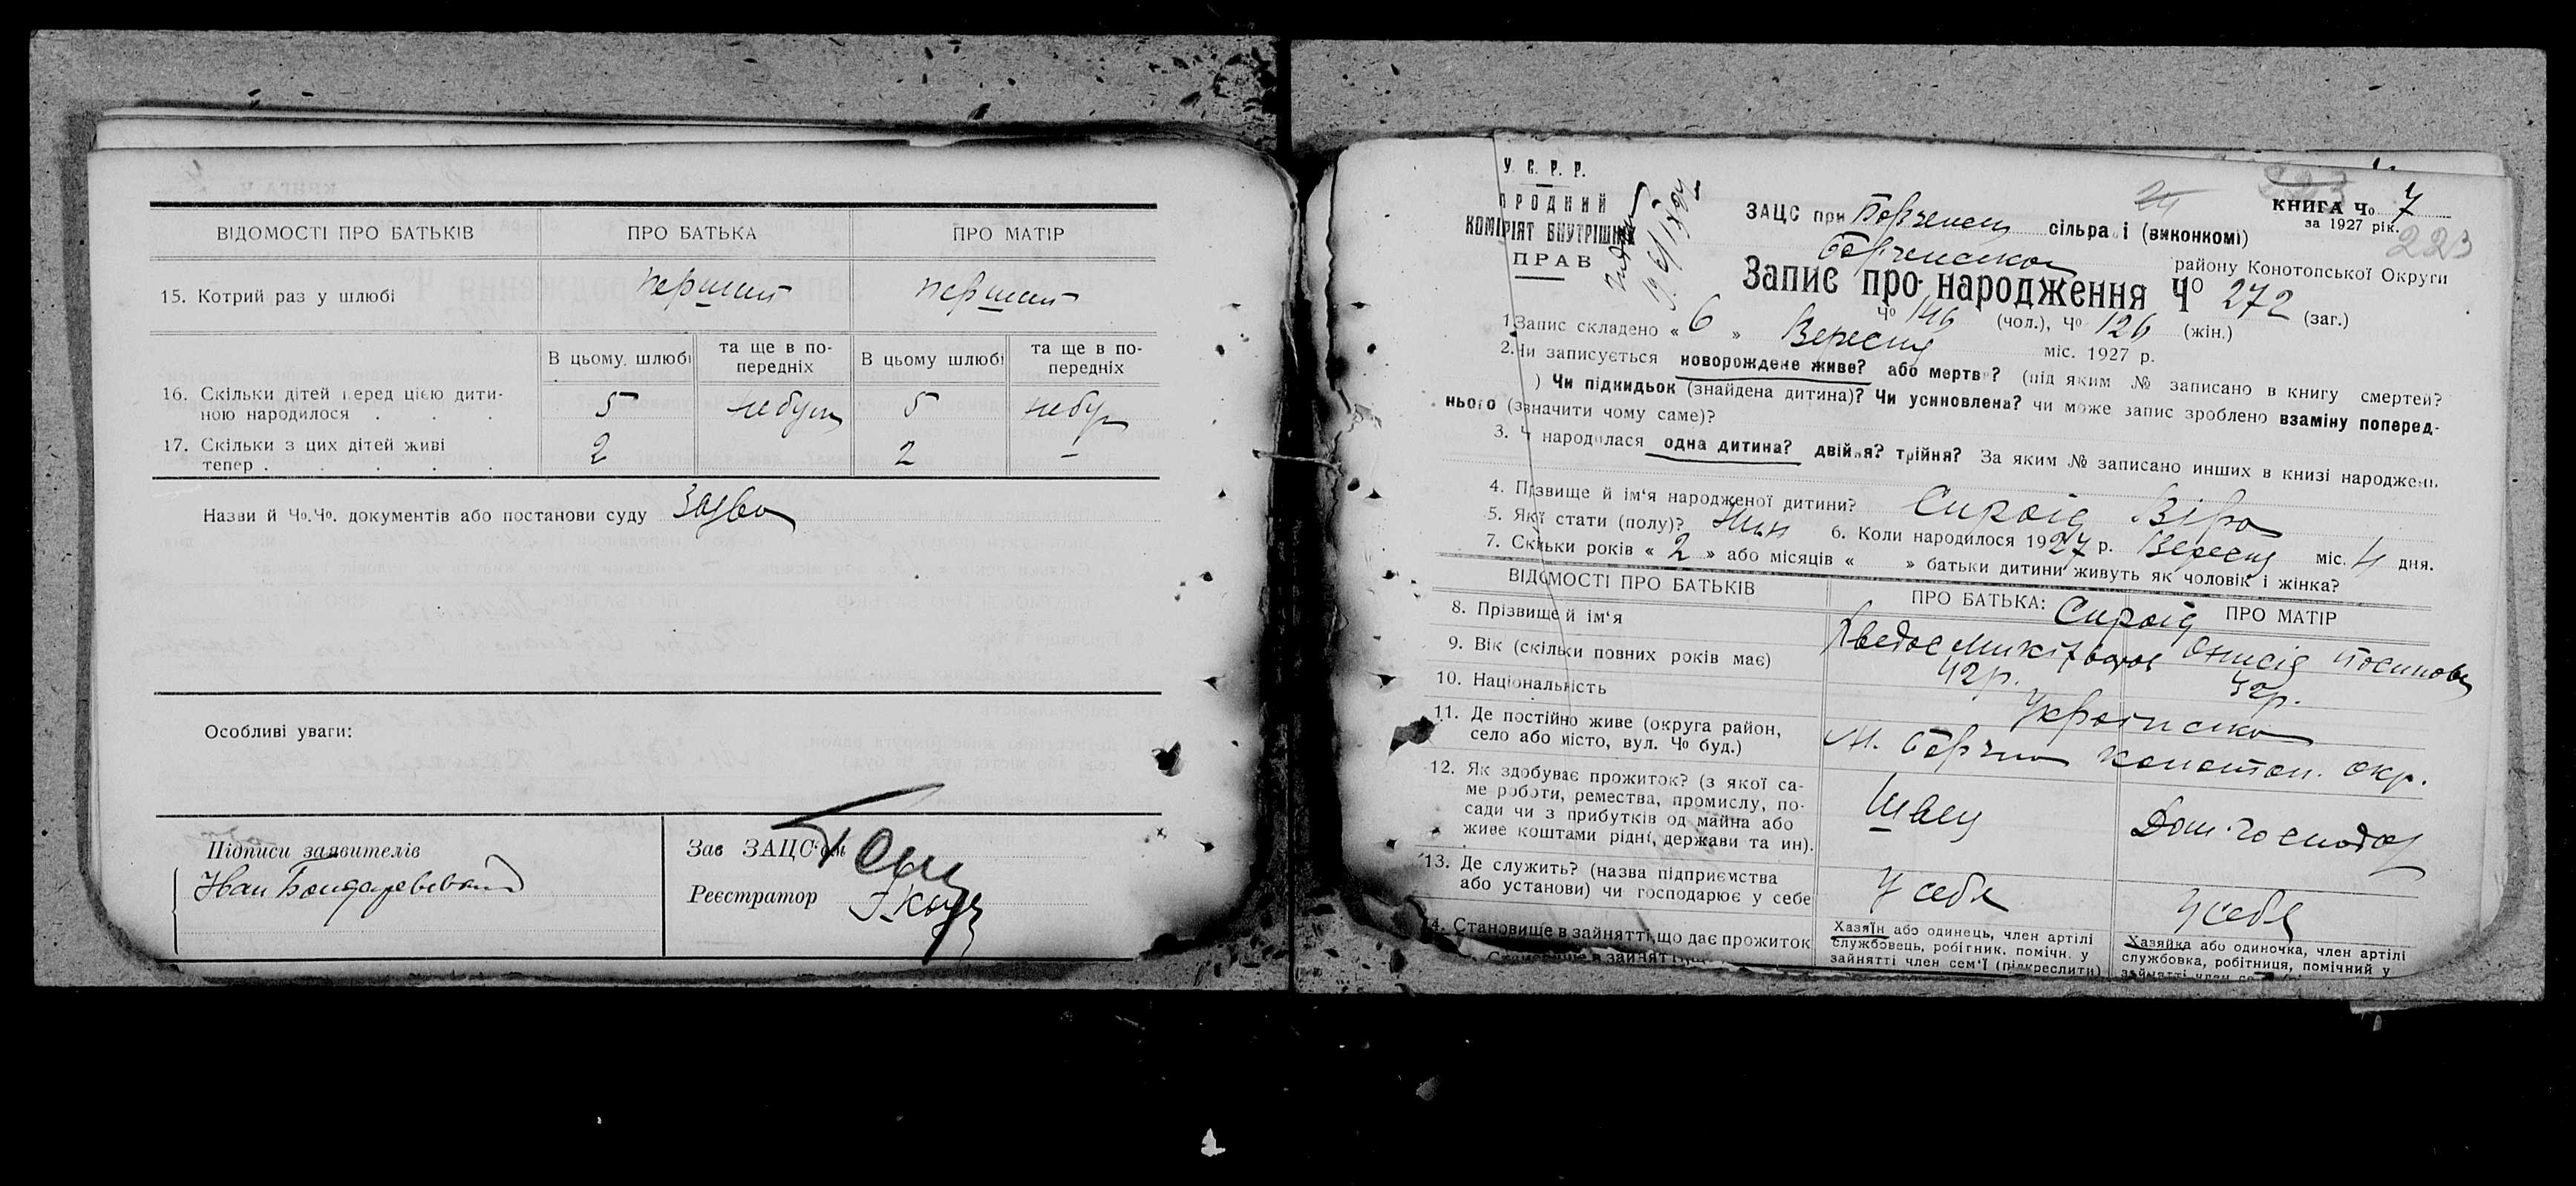 ВІДОМОСТІ ПРО БАТЬКІВ ПРО БАТЬКА ПРО МАТІР
15. Котрий раз у шлюбі
В цьому шлюбі та ще в попередніх В цьому шлюбі та ще в попередніх
16. Скільки дітей перед цією дити-
ною народилося . . . 5 5
17. Скільки з цих дітей живі
тепер . . . . . 2 2 –
Назви й Чо.Чо. документів або постанови суду
Особливі уваги:
Підписи заявителів
Иван
Зав ЗАЦС'ом
Реєстратор
У. С. Р. Р.
РОДНИЙ
КОМІРІЯТ ВНУТРІШНІХ
ПРАВ
КНИГА Чо 7
за 1927 рік.
223
ЗАЦС при сільра і (виконкомі)
району Конотопської Округи
Запис про народження Чо 272 (заг.)
Чо 146 (чол.), Чо 126 (жін.)
1 Запис складено « 6 » Вересня міс. 1927 р.
2. Чи записується новорождене живе? або мертв ? (під яким № записано в книгу смертей?
) Чи підкидьок (знайдена дитина)? Чи усиновлена? чи може запис зроблено взаміну поперед-
нього (зазначити чому саме)?
3. Ч народилася одна дитина? двійня? трійня? За яким № записано инших в книзі народжень
4. Прізвище й ім'я народженої дитини? Сироїд Віра
5. Якї стати (полу)? Жін 6. Коли народилося 1927 р. Вересня міс. 4 дня.
7. Скільки років « 2 » або місяців « » батьки дитини живуть як чоловік і жінка?
ВІДОМОСТІ ПРО БАТЬКІВ ПРО БАТЬКА: ПРО МАТІР
8. Прізвище й ім'я Сироїд
9. Вік (скільки повних років має) 42р. 42р.
10. Національність Українська
11. Де постійно живе (округа район,
село або місто, вул. Чо буд.) М. Борзна Конотоп. окр.
12. Як здобуває прожиток? (з якої са-
ме роботи, ремества, промислу, по-
сади чи з прибутків од майна або
живе коштами рідні, держави та ин). Швець Дом. господар
13. Де служить? (назва підприємства
або установи) чи господарює у себе У себе У себе
14. Становище в зайнятті, що дає прожиток
Хазяїн або одинець, член артілі
службовець, робітник. помічн. у
зайнятті член сем'ї (підкреслити)
Хазяйка або одиночка, член артілі
службовка, робітниця, помічний у